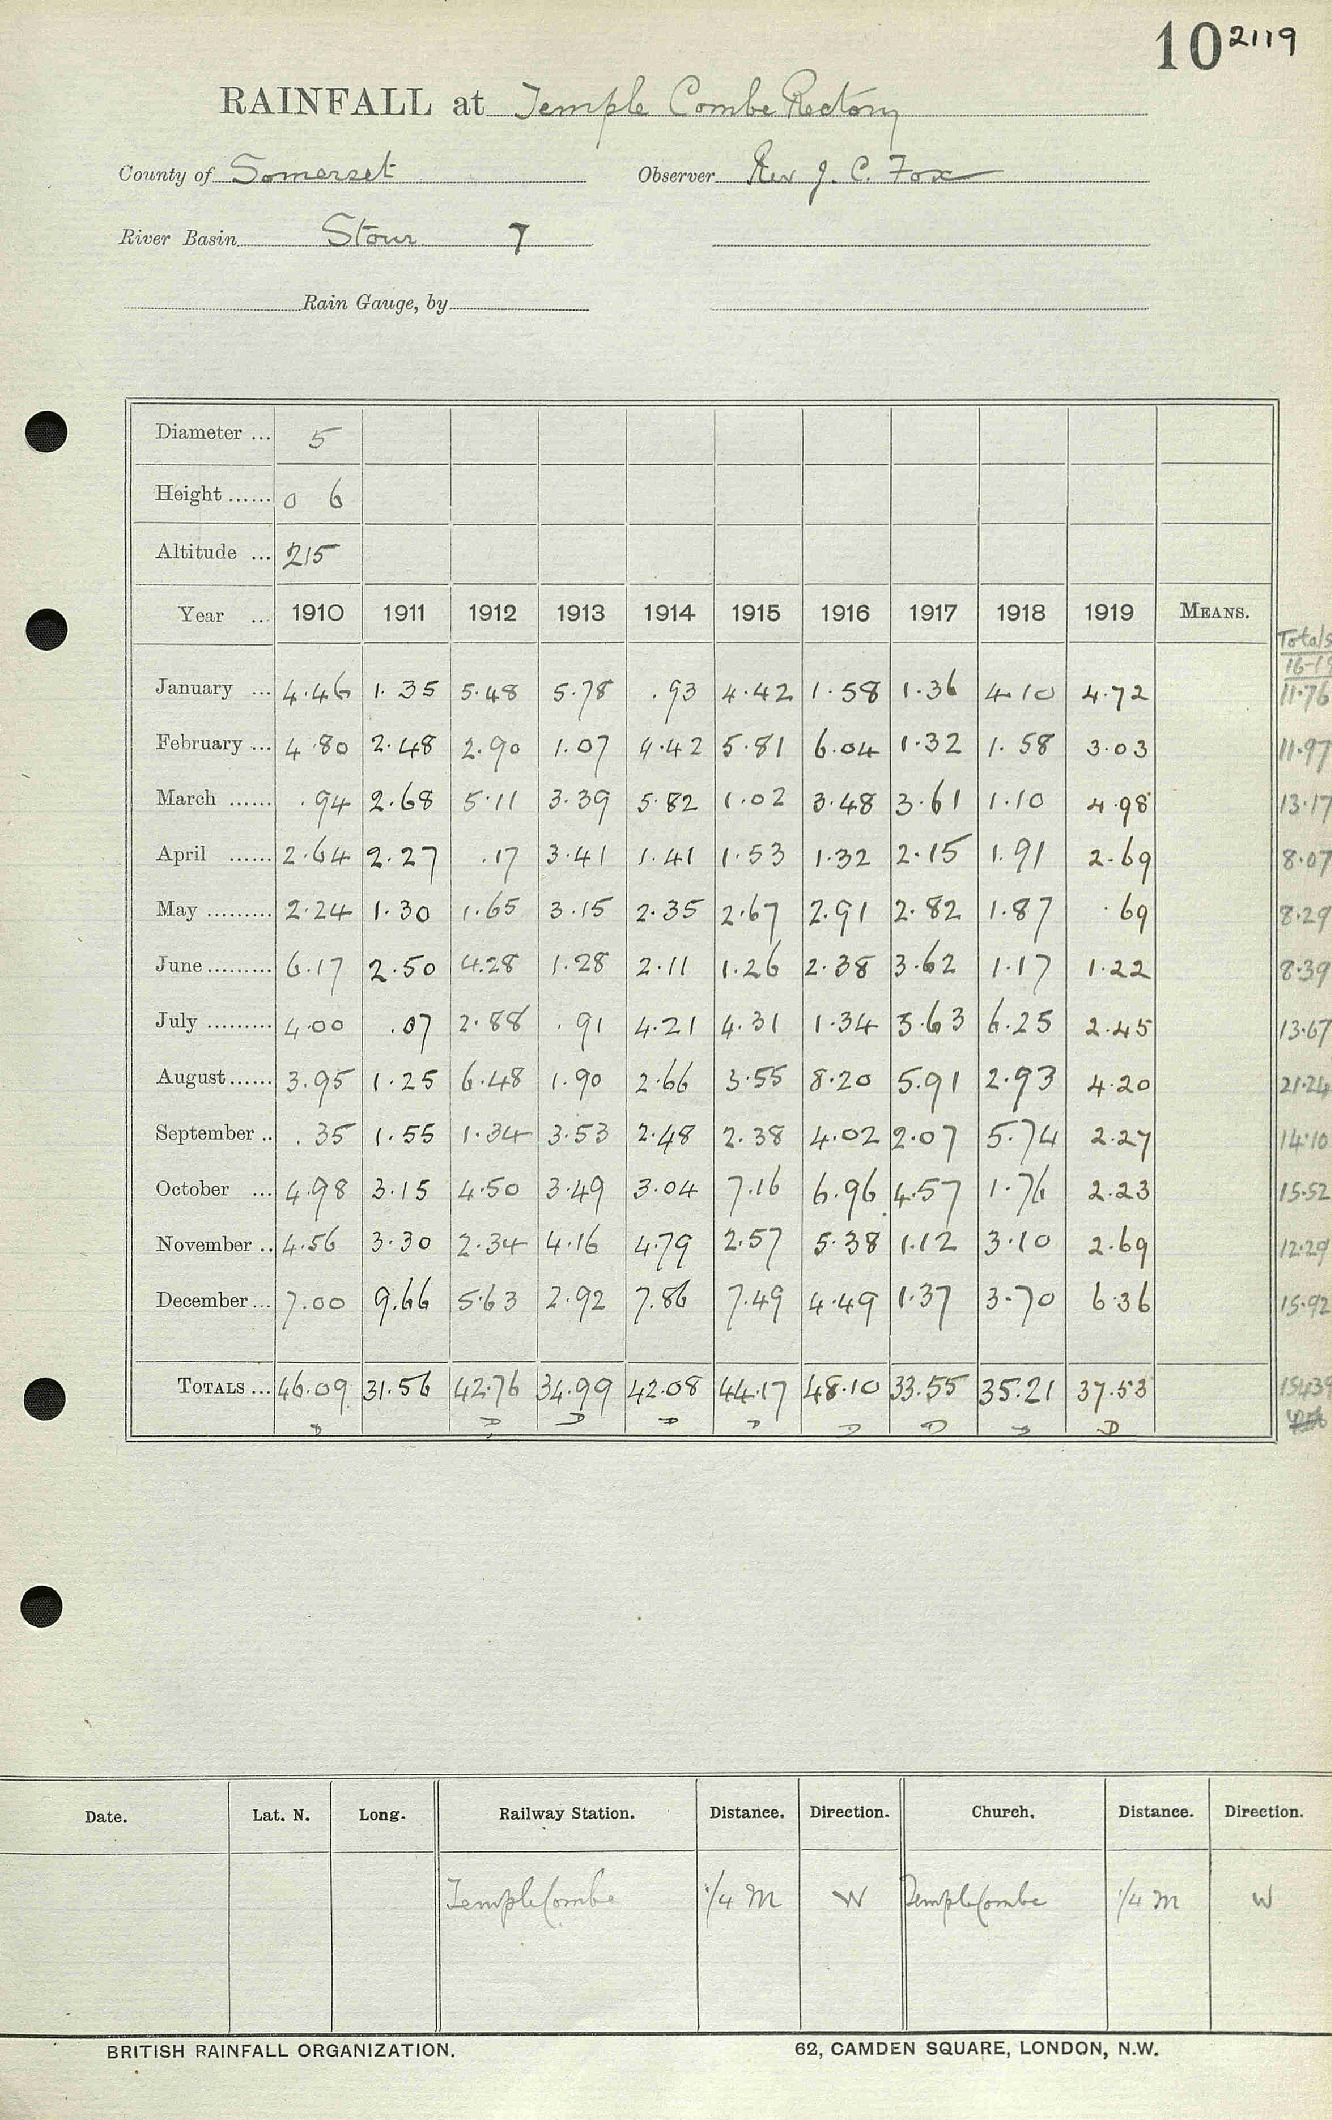 10 2119
RAINFALL at Temple Combe Rectory
County of Somerset Observer Rev J. C. Fox
River Basin Stour 7
Rain Gauge, by
Diameter ... 5
Height ...... 0 6
Altitude ... 215
Year ... 1910 1911 1912 1913 1914 1915 1916 1917 1918 1919 MEANS. Totals 16-19
January ... 4.46 1.35 5.48 5.78 .93 4.42 1.58 1.36 4.10 4.72 11.76
February ... 4.80 2.48 2.90 1.07 4.42 5.81 6.04 1.32 1.58 3.03 11.97
March ...... .94 2.68 5.11 3.39 5.82 1.02 3.48 3.61 1.10 4.98 13.17
April ...... 2.64 2.27 .17 3.41 1.41 1.53 1.32 2.15 1.91 2.69 8.07
May ......... 2.24 1.30 1.65 3.15 2.35 2.67 2.91 2.82 1.87 .69 8.29
June ......... 6.17 2.50 4.28 1.28 2.11 1.26 2.38 3.62 1.17 1.22 8.39
July ......... 4.00 .07 2.88 .91 4.21 4.31 1.34 3.63 6.25 2.45 13.67
August ...... 3.95 1.25 6.48 1.90 2.66 3.55 8.20 5.91 2.93 4.20 21.24
September .. .35 1.55 1.34 3.53 2.48 2.38 4.02 2.07 5.74 2.27 14.10
October ... 4.98 3.15 4.50 3.49 3.04 7.16 6.96 4.57 1.76 2.23 15.52
November .. 4.56 3.30 2.34 4.16 4.79 2.57 5.38 1.12 3.10 2.69 12.29
December ... 7.00 9.66 5.63 2.92 7.86 7.49 4.49 1.37 3.70 6.36 15.92
TOTALS ... 46.09 31.56 42.76 34.99 42.08 44.17 48.10 33.55 35.21 37.53 154.39
D D D D D D D D D
Date. Lat. N. Long. Railway Station. Distance. Direction. Church. Distance. Direction.
Temple Combe 1/4 m W Temple Combe 1/4 m W
BRITISH RAINFALL ORGANIZATION. 62, CAMDEN SQUARE, LONDON, N.W.